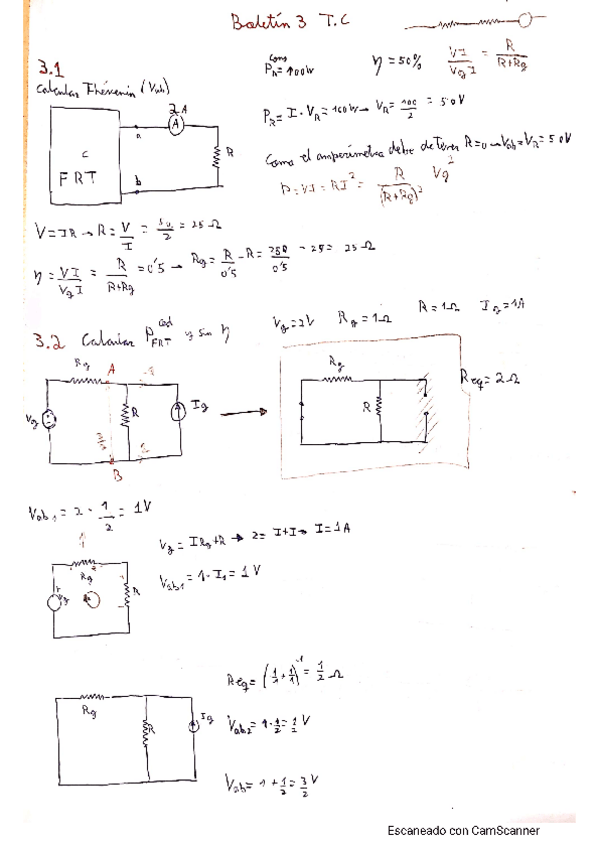 Boletín 3 T.C
3.1
Calcular Thévenin (Vab)
cons
P_R = 100W
η = 50% VI/VgI = R/(R+Rg)
2A
A
a
R
C
FRT
b
P_R = I · V_R = 100W → V_R = 100/2 = 50V
Como el amperímetro debe de tener R=0 → Vab = V_R = 50V
P = VI = RI² = R/(R+Rg)² Vg²
V = IR → R = V/I = 50/2 = 25 Ω
η = VI/VgI = R/(R+Rg) = 0'5 → Rg = R/0'5 - R = 25R/0'5 - 25 = 25 Ω
3.2 Calcular P_FRT y sin η
Vg = 2V Rg = 1Ω R = 1Ω Ig = 1A
Rg A
Vg R Ig
B
Rg
R
Req = 2Ω
Vab₁ = 2 · 1/2 = 1V
Vg = IRg + R → 2 = I + I → I = 1A
Vab₁ = 1 · I₁ = 1V
Rg
R
Req = (1/1 + 1/1)⁻¹ = 1/2 Ω
Rg R Ig
Vab₂ = 1 · 1/2 = 1/2 V
Vab = 1 + 1/2 = 3/2 V
Escaneado con CamScanner